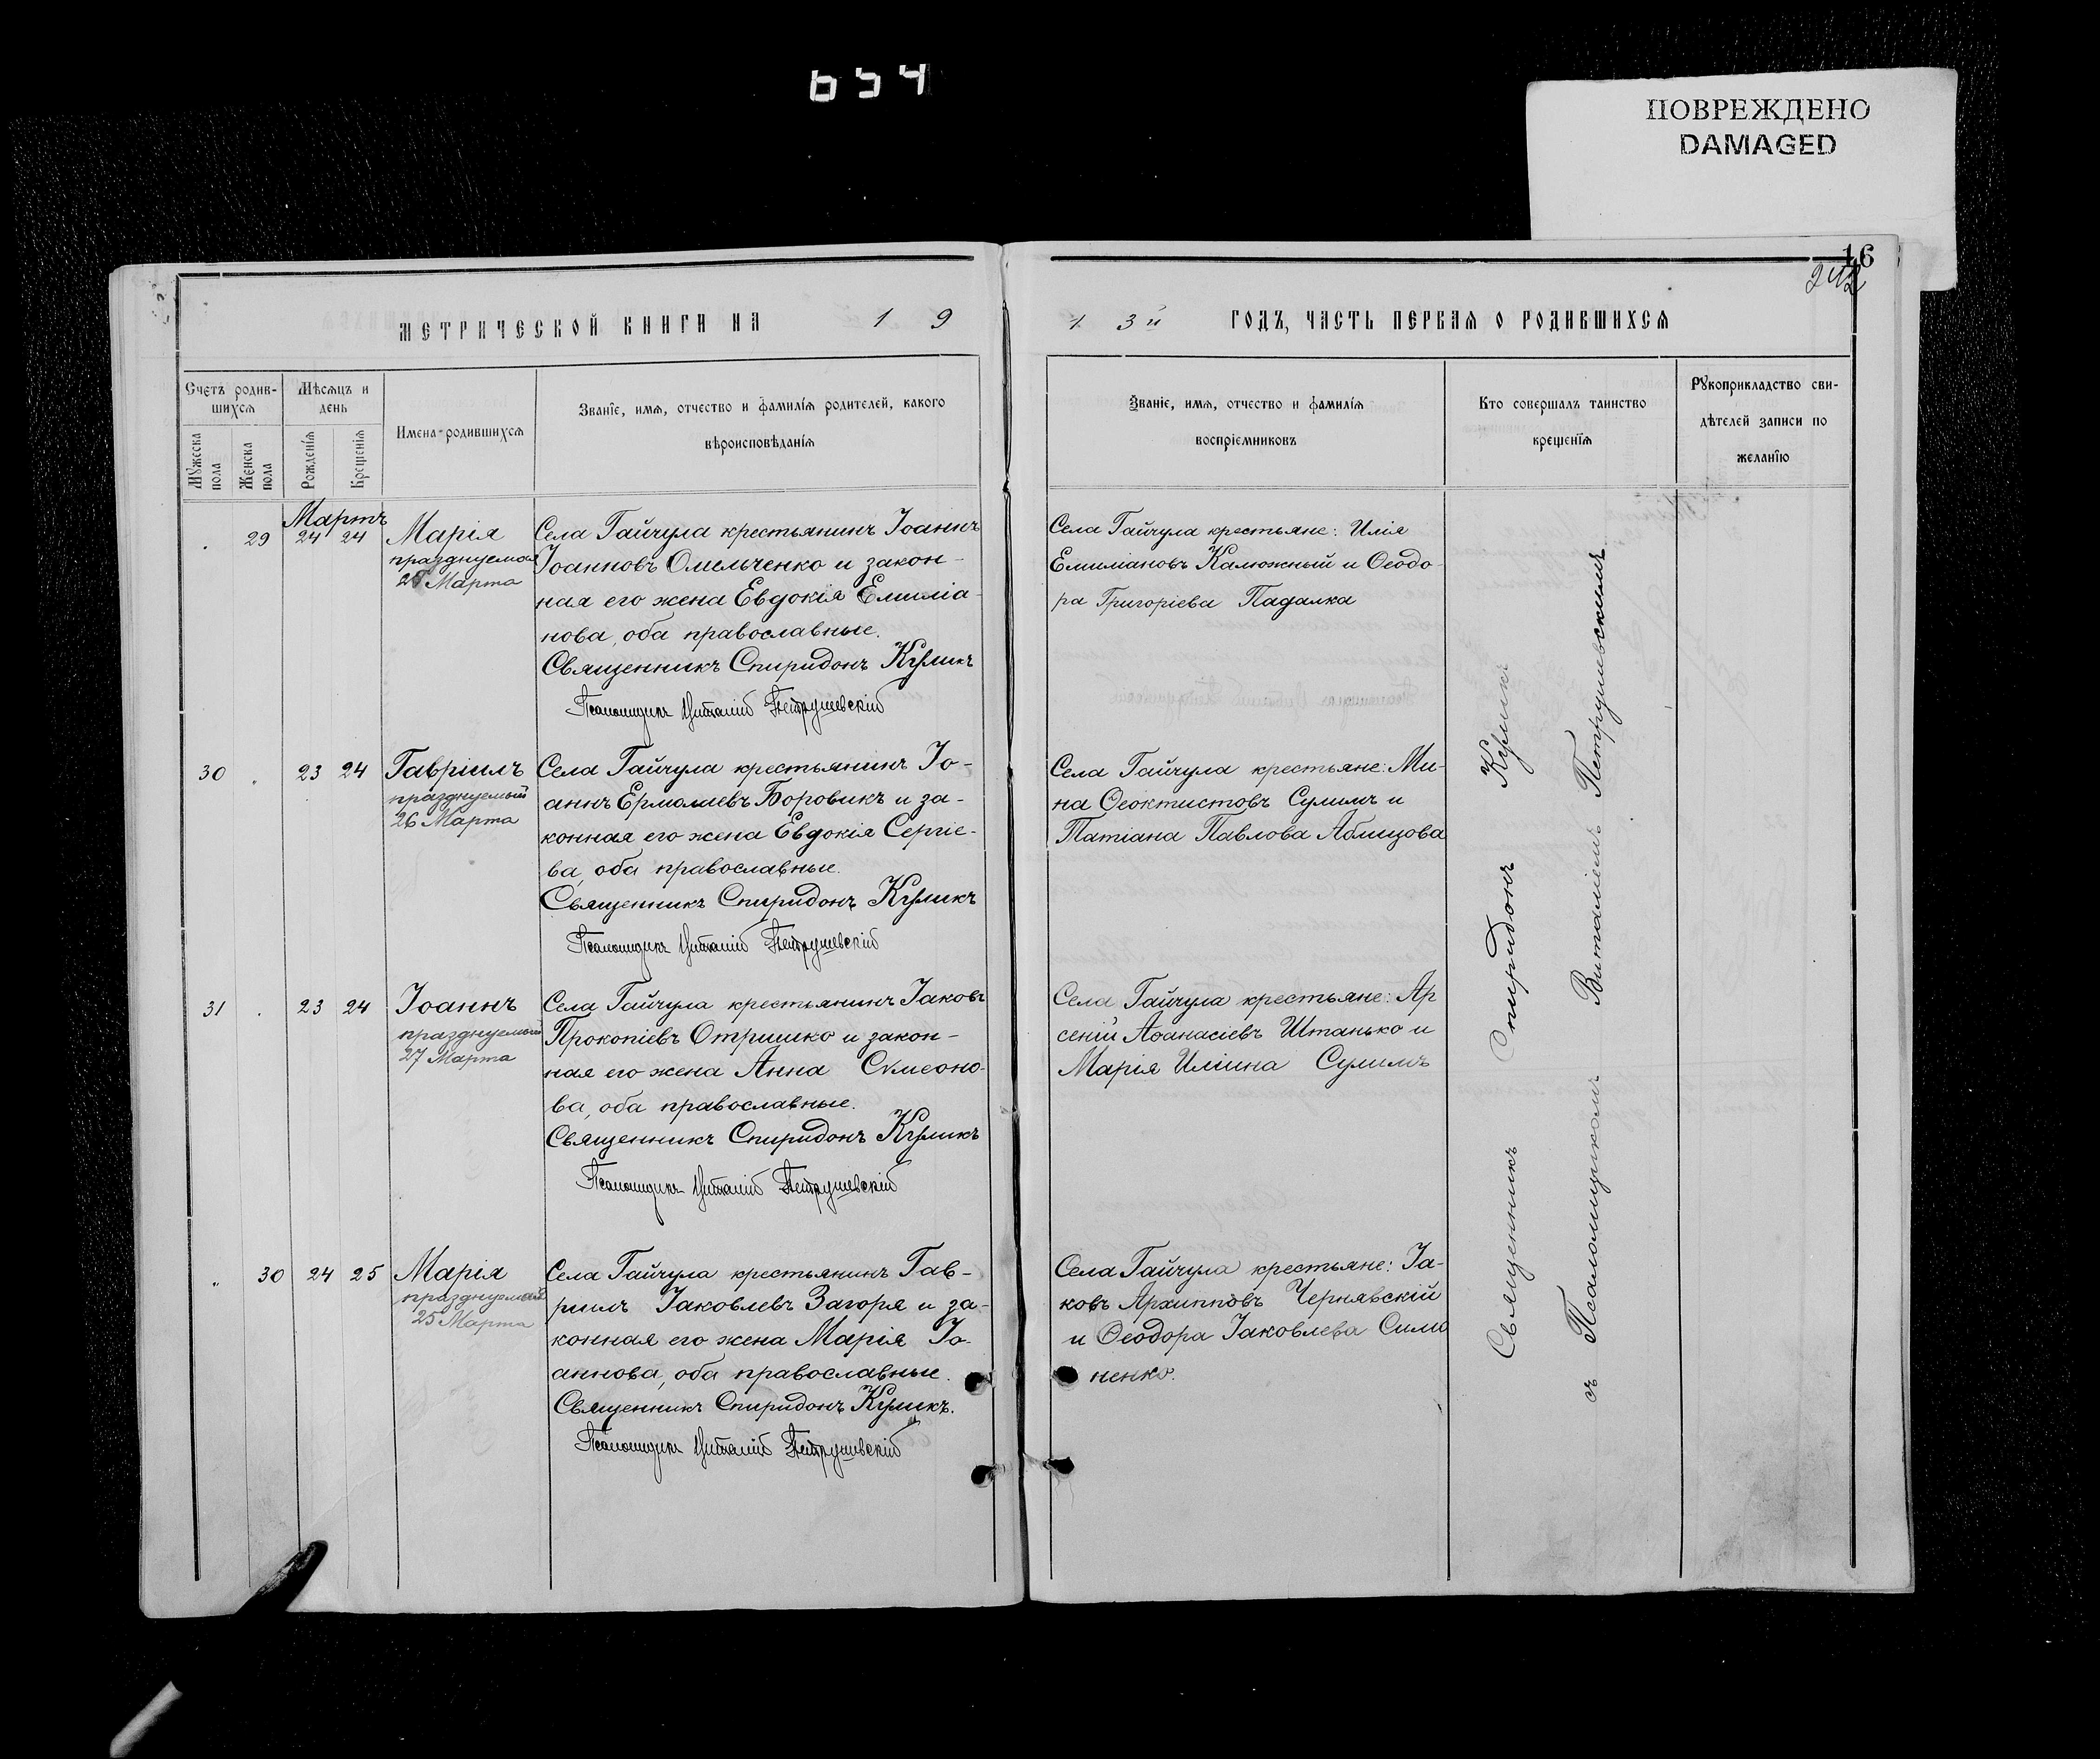 654
ПОВРЕЖДЕНО
DAMAGED
16
242
МЕТРИЧЕСКОЙ КНИГИ НА 1 9
1 3й ГОДЪ, ЧАСТЬ ПЕРВАЯ О РОДИВШИХСЯ
Счетъ родив-
шихся
Мѣсяцъ и
день
Мужеска
пола
Женска
пола
Рожденія
Крещенія
Имена родившихся
Званіе, имя, отчество и фамилія родителей, какого
вѣроисповѣданія
Званіе, имя, отчество и фамилія
воспріемниковъ
Кто совершалъ таинство
крещенія
Рукоприкладство сви-
дѣтелей записи по
желанію
Мартъ
29 24 24
Марія
празднуемая
25 Марта
Села Гайчула крестьянинъ Іоаннъ
Іоанновъ Омельченко и закон-
ная его жена Евдокія Емиліа-
нова, оба православные.
Священникъ Спиридонъ Куликъ
Псаломщикъ Виталій Петрушевскій
Села Гайчула крестьяне: Илія
Емиліановъ Калюжный и Ѳеодо-
ра Григоріева Падалка
30 23 24
Гавріилъ
празднуемый
26 Марта
Села Гайчула крестьянинъ Іо-
аннъ Ермолаевъ Боровикъ и за-
конная его жена Евдокія Сергіе-
ва, оба православные.
Священникъ Спиридонъ Куликъ
Псаломщикъ Виталій Петрушевскій
Села Гайчула крестьяне: Ми-
на Ѳеоктистовъ Сулимъ и
Татіана Павлова Аблицова
31 23 24
Іоаннъ
празднуемый
27 Марта
Села Гайчула крестьянинъ Іаковъ
Прокопіевъ Отришко и закон-
ная его жена Анна Сѵмеоно-
ва, оба православные.
Священникъ Спиридонъ Куликъ
Псаломщикъ Виталій Петрушевскій
Села Гайчула крестьяне: Ар
сеній Аѳанасіевъ Штанько и
Марія Иліина Сулимъ
30 24 25
Марія
празднуемая
25 Марта
Села Гайчула крестьянинъ Гав-
риилъ Іаковлевъ Загоря и за-
конная его жена Марія Іо-
аннова, оба православные.
Священникъ Спиридонъ Куликъ.
Псаломщикъ Виталій Петрушевскій
Села Гайчула крестьяне: Іа-
ковъ Архипповъ Чернявскій
и Ѳеодора Іаковлева Сили
ненко.
Священникъ Спиридонъ Куликъ
съ Псаломщикомъ Виталіемъ Петрушевскимъ